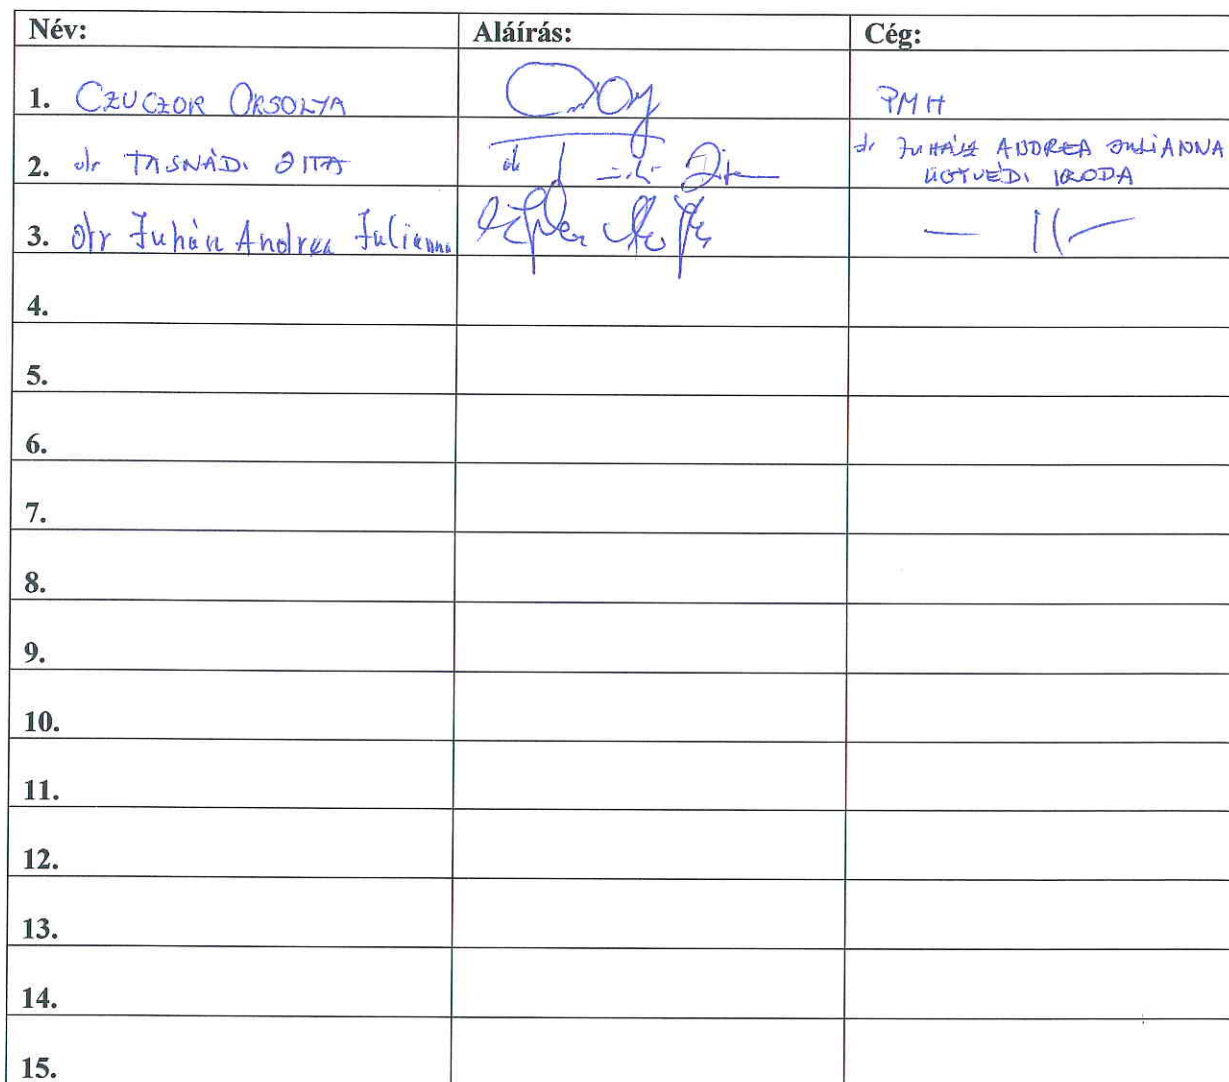 Név: Aláírás: Cég:
1. CZUCZOR ORSOLYA PMH
2. dr TASNÁDI ZITA dr JUHÁSZ ANDREA JULIANNA
ÜGYVÉDI IRODA
3. dr Juhász Andrea Julianna — 11 —
4.
5.
6.
7.
8.
9.
10.
11.
12.
13.
14.
15.